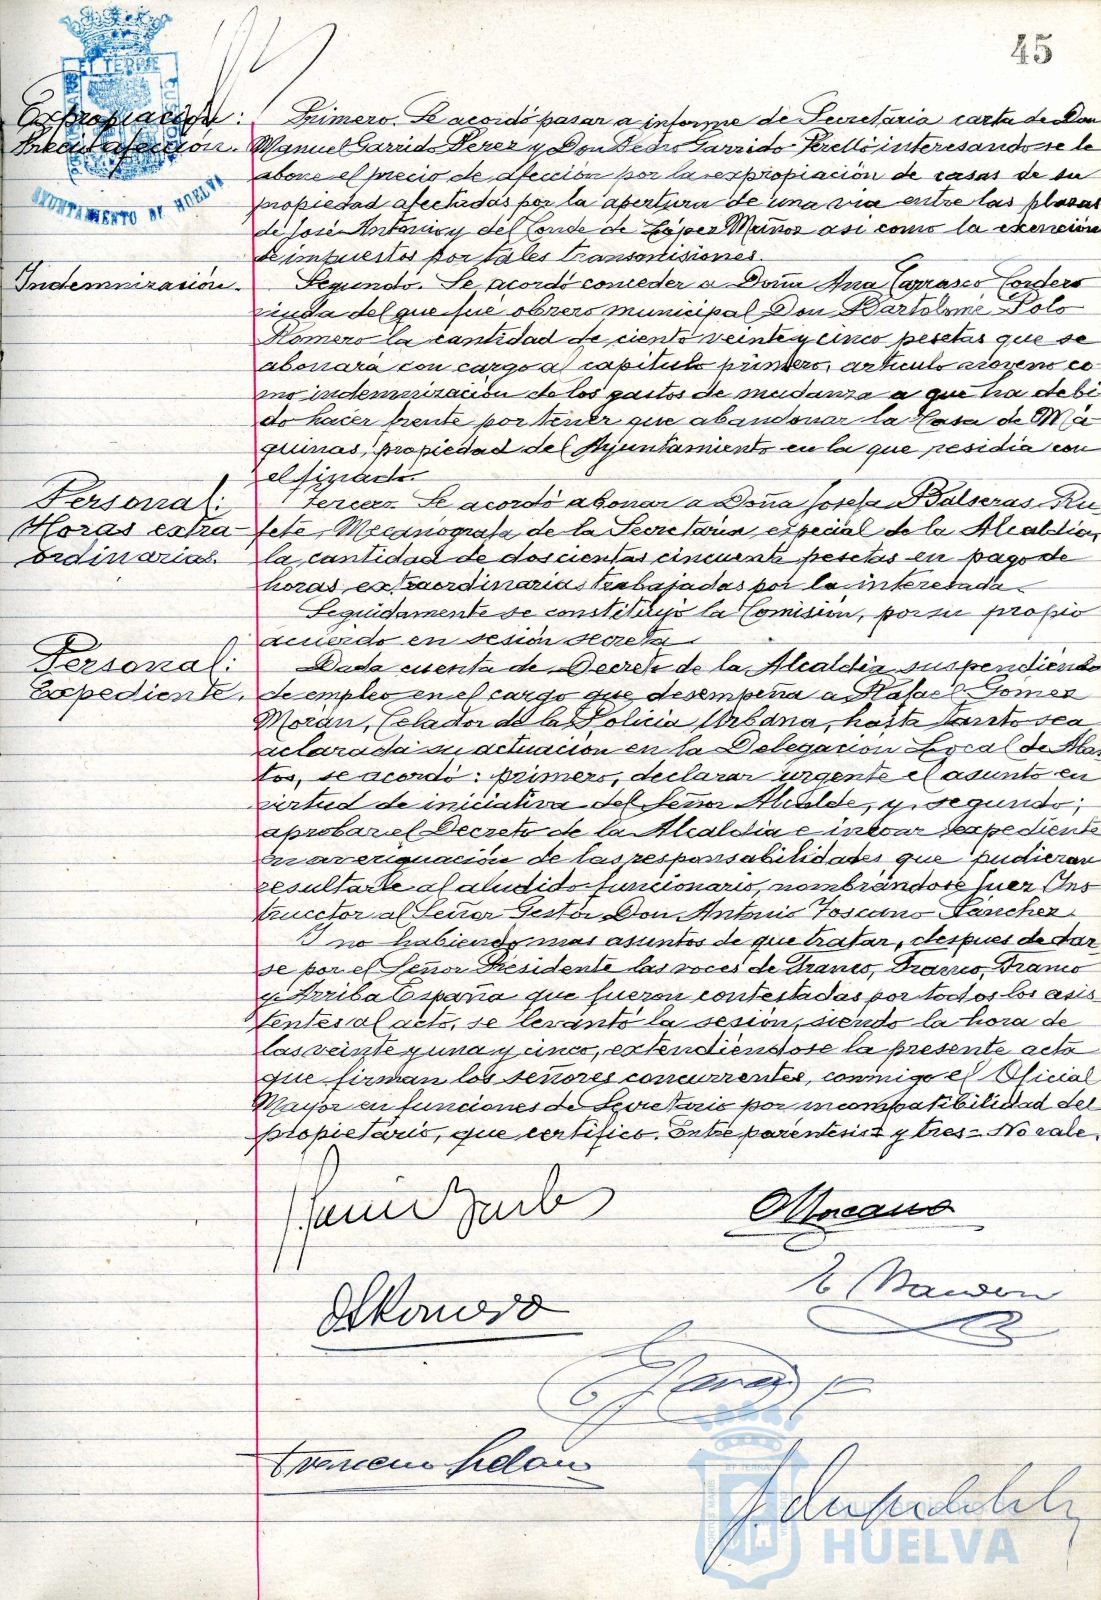 45
AYUNTAMIENTO DE HUELVA
Expropiación:
Precio afección.
Primero. Se acordó pasar a informe de Secretaria carta de Don
Manuel Garrido Perez y Don Pedro Garrido Perelló interesando se le
abone el precio de afección por la expropiación de casas de su
propiedad afectadas por la apertura de una via entre las plazas
de José Antonio y del Conde de López Muñoz asi como la exención
de impuestos por tales transmisiones.
Indemnización.
Segundo. Se acordó conceder a Doña Ana Carrasco Cordero
viuda del que fué obrero municipal Don Bartolomé Polo
Romero la cantidad de ciento veinte y cinco pesetas que se
abonará con cargo al capitulo primero, articulo noveno co
mo indemnización de los gastos de mudanza a que ha debi
do hacer frente por tener que abandonar la Casa de Má-
quinas, propiedad del Ayuntamiento en la que residia con
el finado.
Personal:
Horas extra-
ordinarias.
Tercero. Se acordó abonar a Doña Josefa Balseras Ru-
fete, Mecanografa de la Secretaria especial de la Alcaldia,
la cantidad de doscientas cincuenta pesetas en pago de
horas extraordinarias trabajadas por la interesada.
Seguidamente se constituyó la Comisión, por su propio
acuerdo en sesión secreta.
Personal:
Expediente.
Dada cuenta de Decreto de la Alcaldia suspendiendo
de empleo en el cargo que desempeña a Rafael Gómez
Morán, Celador de la Policia Urbana, hasta tanto sea
aclarada su actuación en la Delegación Local de Abas
tos, se acordó: primero, declarar urgente el asunto en
virtud de iniciativa del Señor Alcalde, y, segundo;
aprobar el Decreto de la Alcaldia e incoar expediente
en averiguación de las responsabilidades que pudieran
resultarle al aludido funcionario, nombrándose Juez Ins
tructor al Señor Gestor Don Antonio Toscano Sánchez.
Y no habiendo mas asuntos de que tratar, despues de dar
se por el Señor Presidente las voces de Franco, Franco, Franco
y Arriba España que fueron contestadas por todos los asis
tentes al acto, se levantó la sesión, siendo la hora de
las veinte y una y cinco, extendiéndose la presente acta
que firman los señores concurrentes, conmigo el Oficial
Mayor en funciones de Secretario por incompatibilidad del
propietario, que certifico. Entre parentesis = y tres = No vale.
HUELVA